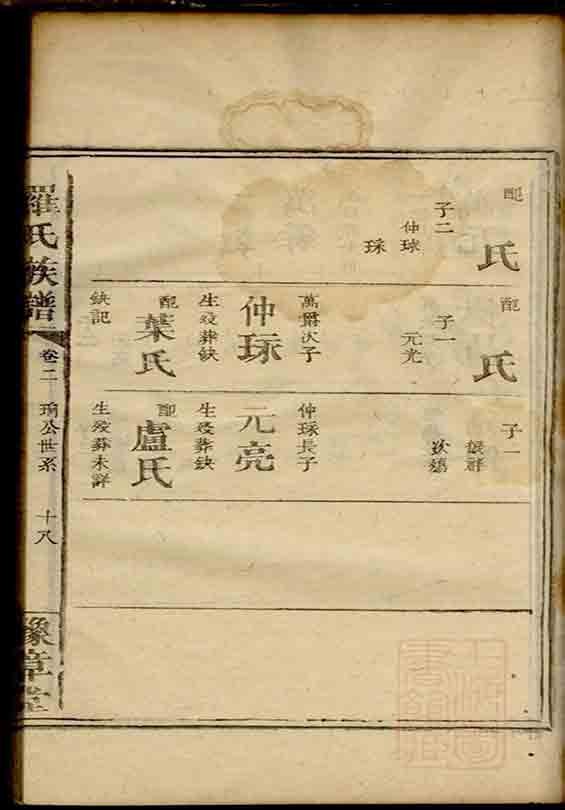 配
氏
子二
仲球
琛
配
氏
子一
元光
萬爵次子
仲琛
生歿葬缺
配
葉氏
缺記
子一
仲琛長子
元亮
生歿葬缺
配
盧氏
生歿葬未詳
羅氏族譜
卷二
公世系
十八
豫章堂